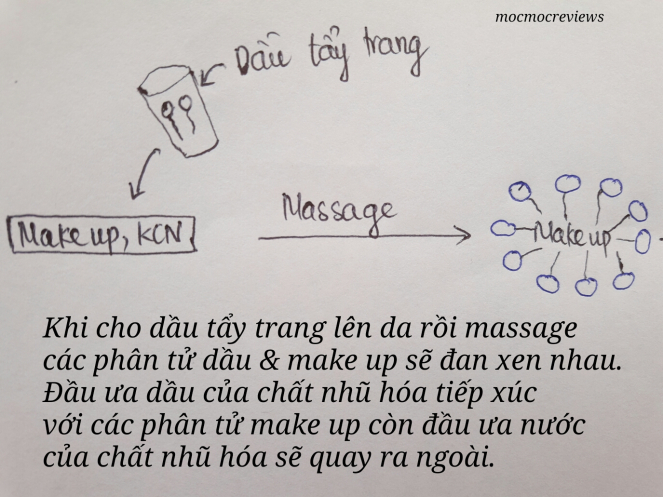 mocmocreviews
Dầu tẩy trang
Make up, KCN
Massage
Make up
Khi cho dầu tẩy trang lên da rồi massage
các phân tử dầu & make up sẽ đan xen nhau.
Đầu ưa dầu của chất nhũ hóa tiếp xúc
với các phân tử make up còn đầu ưa nước
của chất nhũ hóa sẽ quay ra ngoài.